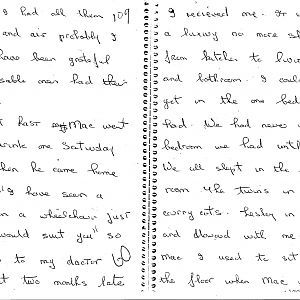 I had all them jog
and air probably I
have been grateful
sable men had their
t last Mac went
drink one Saturday
hen he came home
"I have seen a
n a wheelchair just
would suit you" so
to my doctor
t two months late
I recieved one. It w
a luxury no more sh
from kitchen to livin
and bathroom. I could
get in the one bed
had. We had never
bedroom we had with
We all slept in the
room the twins in
carry cots. Lesley in
and downed with me
mac I used to sit
the floor when Mac